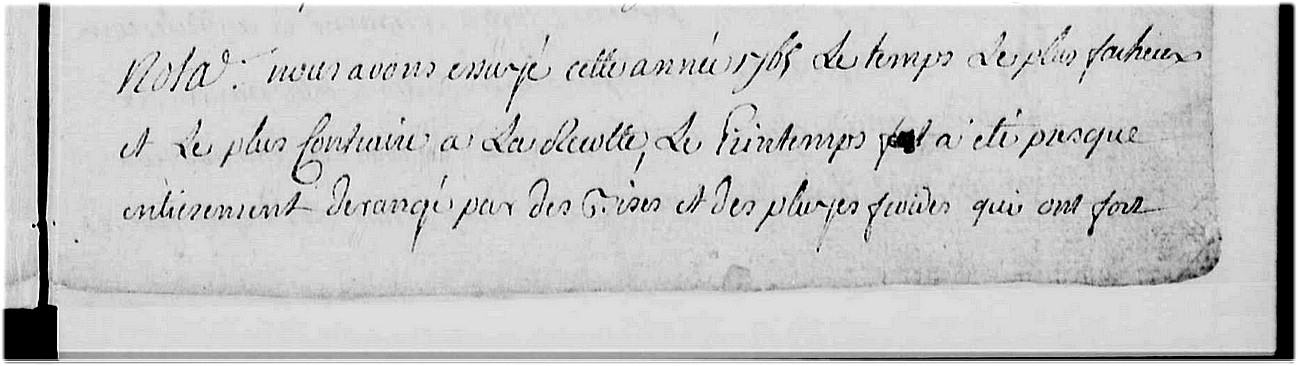 Nota. nous avons essuyé cette année 1765 Le temps Le plus facheux
et Le plus Contraire a La Recolte, Le Printemps a été presque
entierement derangé par des Bises et des pluyes froides qui ont fort